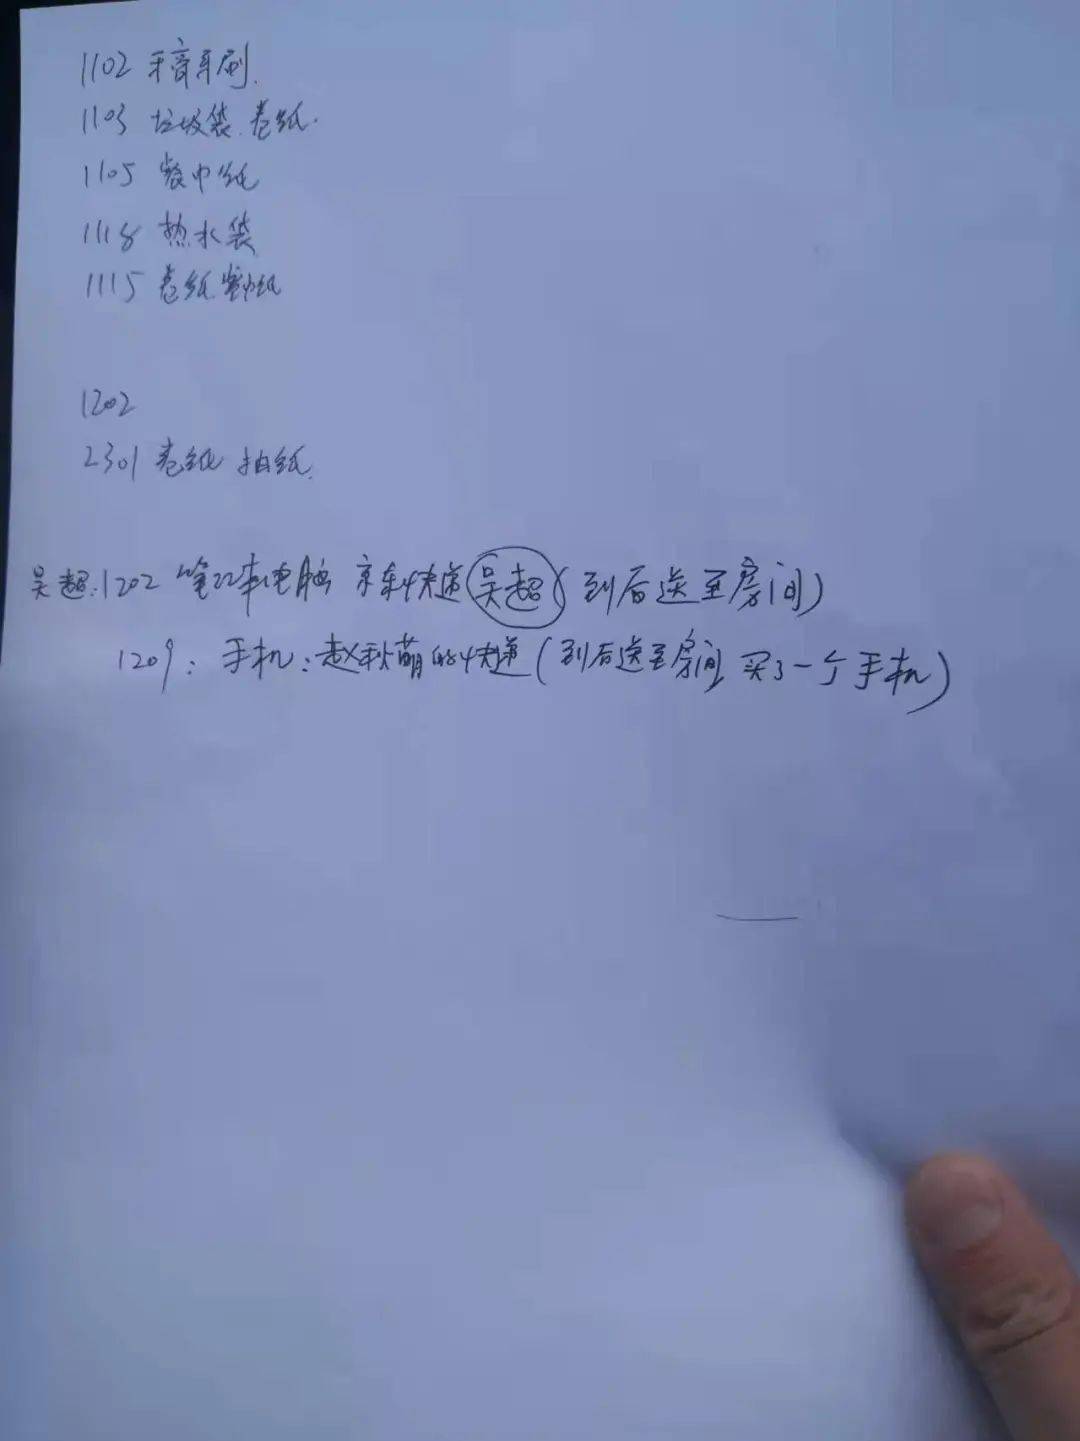 1102 牙膏牙刷.
1103 垃圾袋.卷纸.
1105 餐巾纸
1118 热水袋
1115 卷纸 餐巾纸
1202
2301 卷纸 抽纸.
吴超:1202 笔记本电脑 京东快递 吴超 (到后送至房间)
1209: 手机: 赵秋萌的快递 (到后送至房间, 买了一个手机)